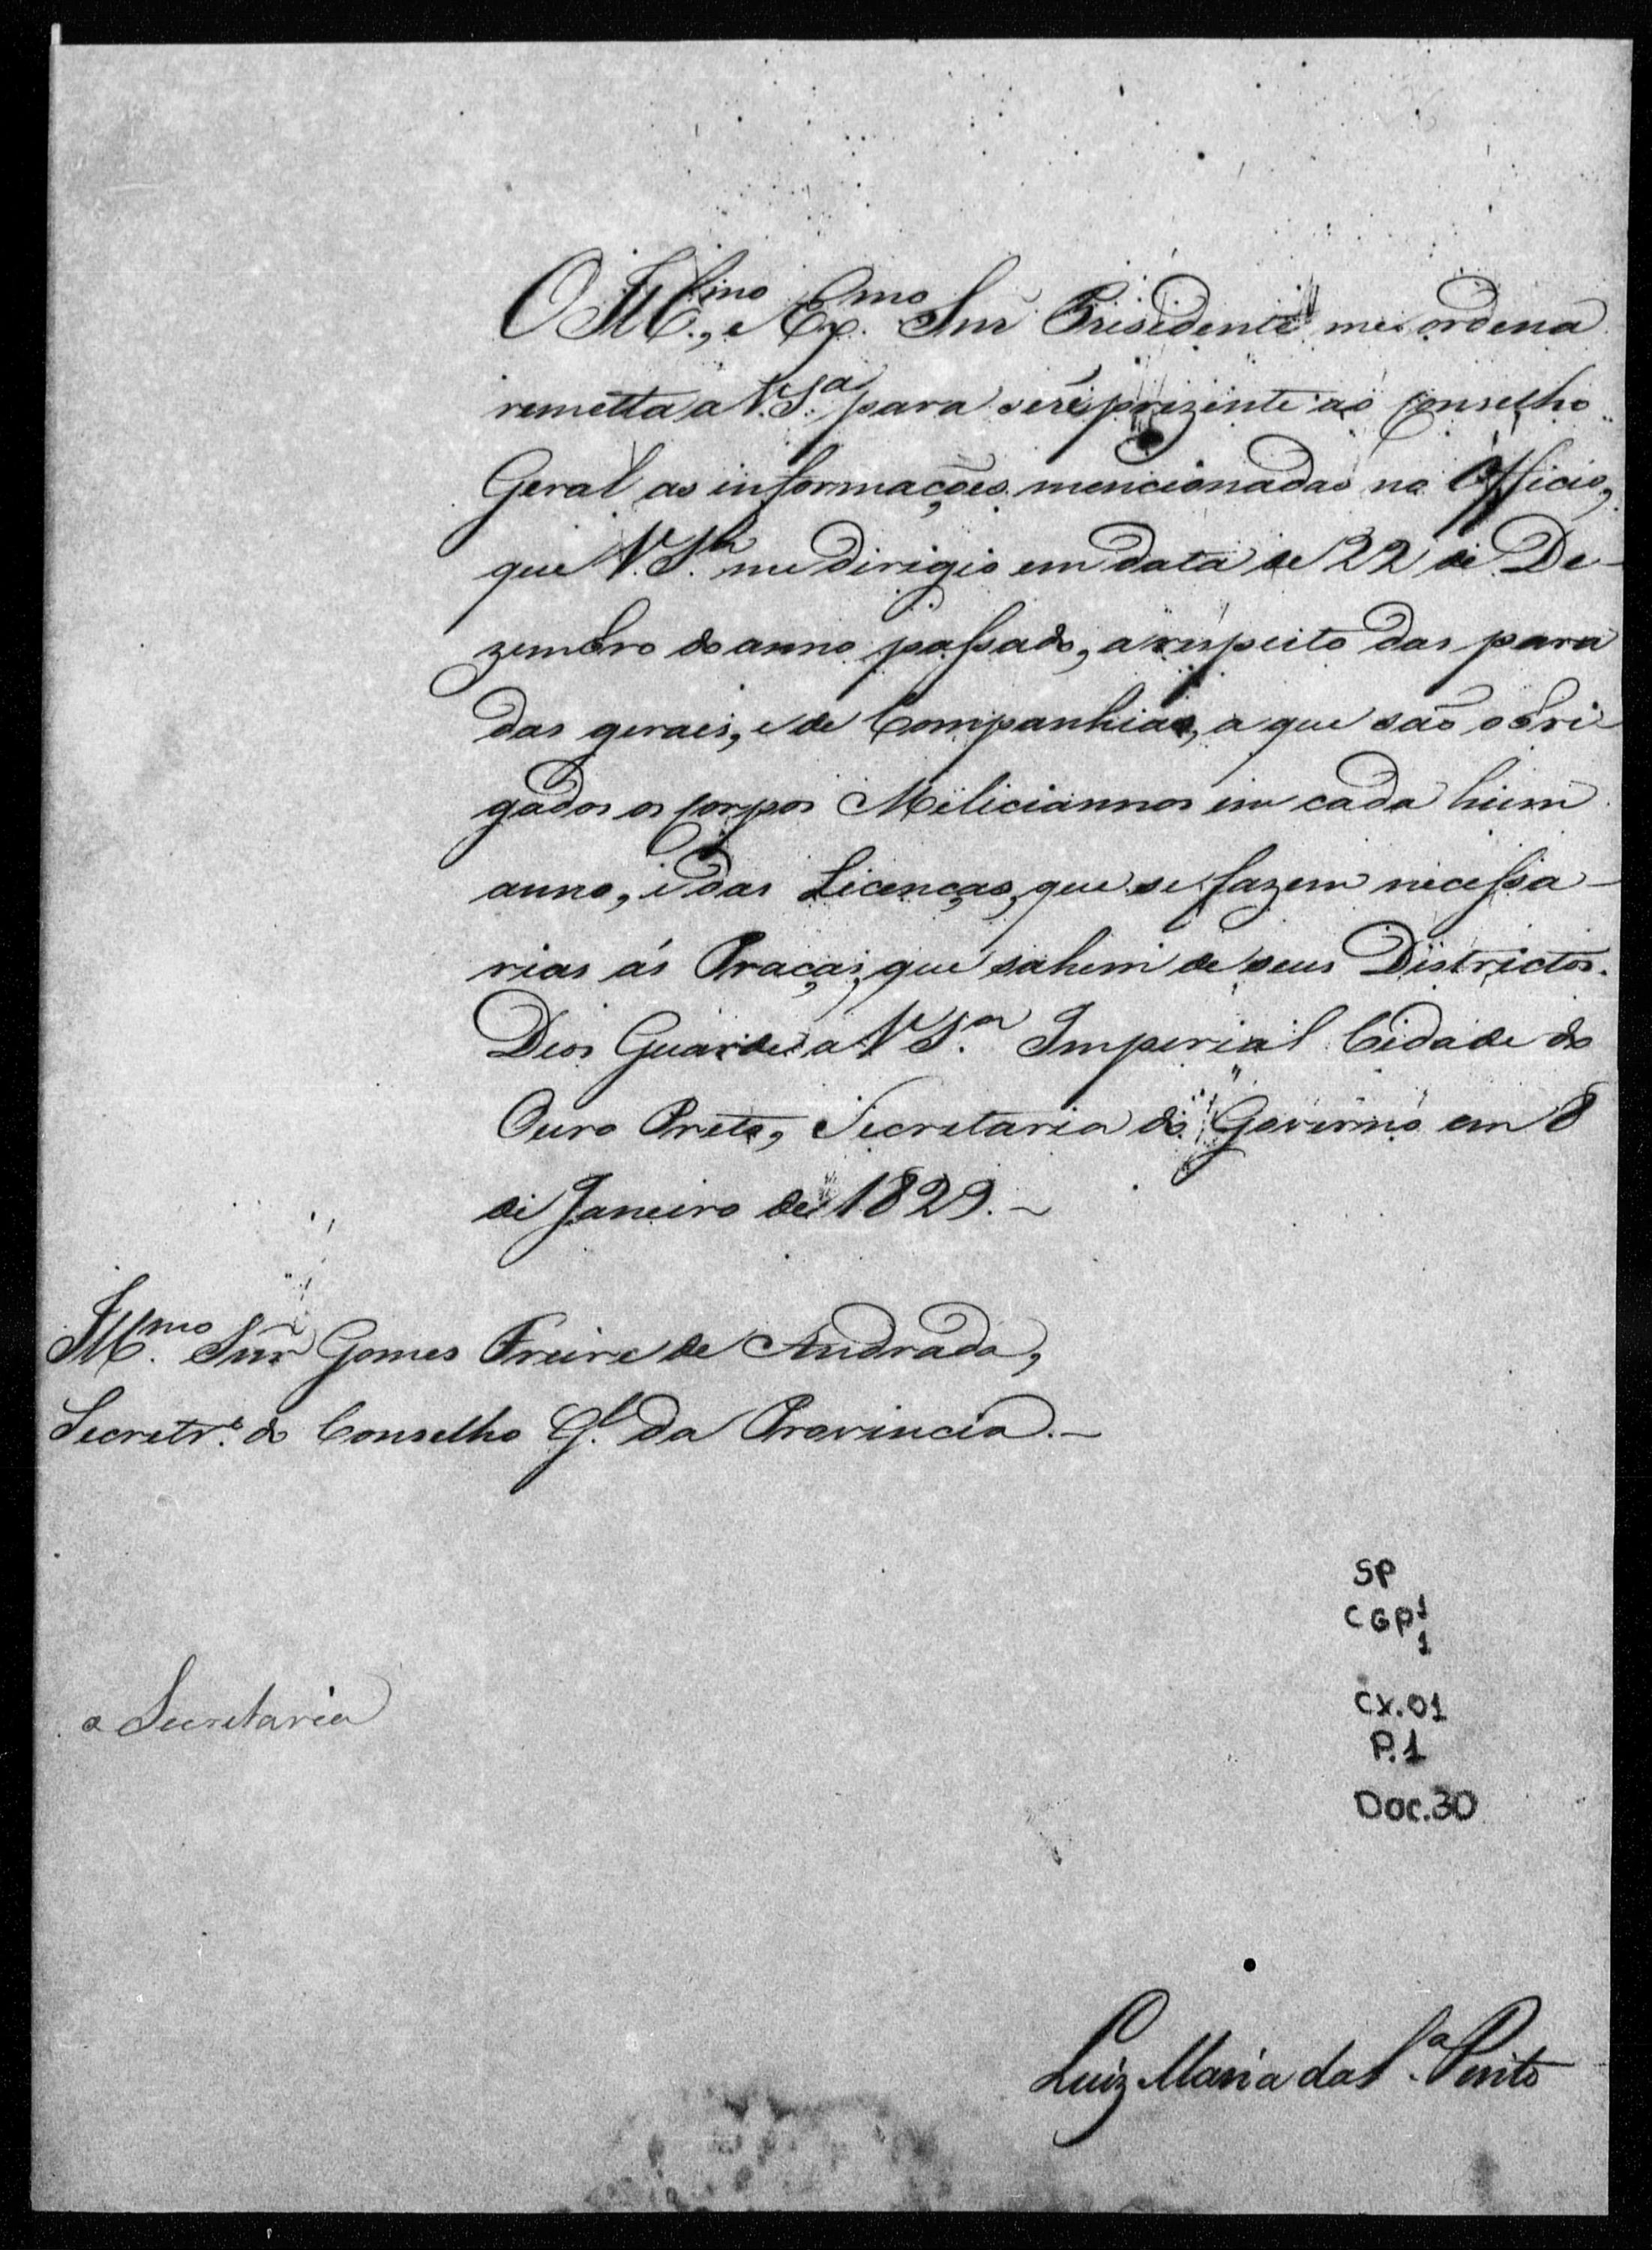 O Ill.mo, e Ex.mo Snr Presidente me ordena
remetta a V. S.a para ser prezente ao Conselho
Geral as informações mencionadas no Officio,
que V. S.a me dirigio em data de 22 de De-
zembro do anno passado, a respeito das para
das geraes, e de Companhias, a que são obri-
gados os Corpos Miliciannos em cada hum
anno, e das Licenças, que se fazem necessa-
rias ás Praças, que sahem de seus Districtos.
Deos Guarde a V S.a Imperial Cidade do
Ouro Preto, Secretaria do Governo em 8
de Janeiro de 1829. ~
Ill.mo Snr Gomes Freire de Andrada,
Secretr.o do Conselho G.l da Provincia. ~
SP
CGP1
1
a Secretaria
CX.01
P.1
Doc.30
Luiz Maria da S.a Pinto